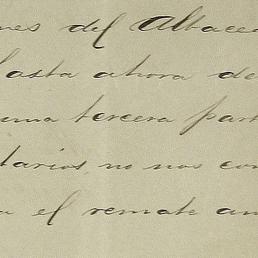 nes del Albacea
hasta ahora de
una tercera part
tarios, no nos con
a el remate an